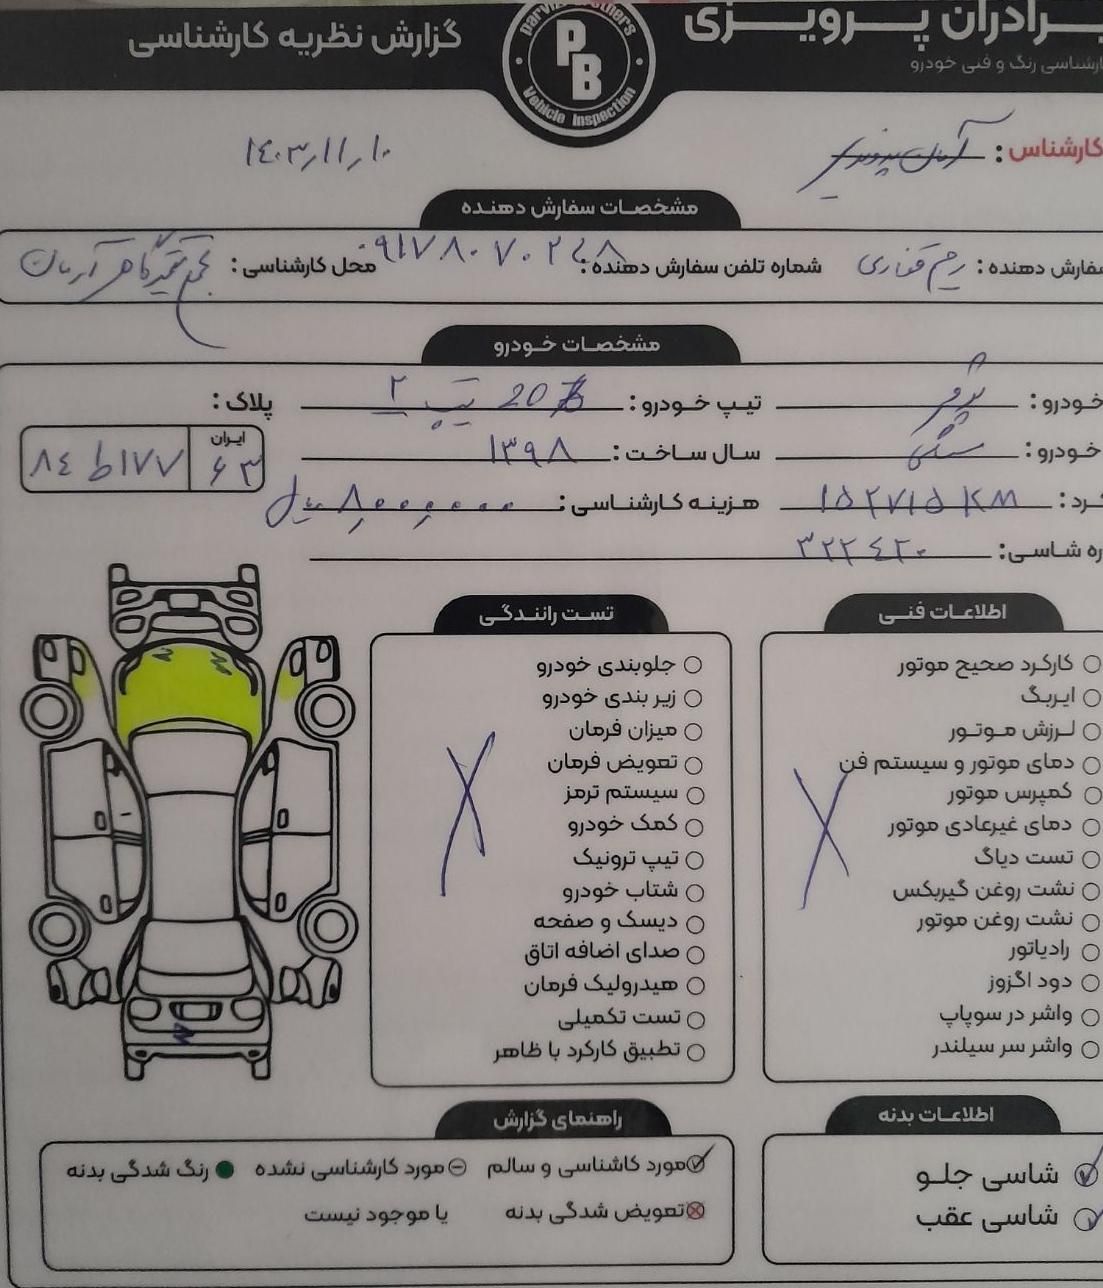 برادران پرویزی
گزارش نظریه کارشناسی
کارشناسی رنگ و فنی خودرو
Parvizi Brothers
PB
Vehicle Inspection
کارشناس:
۱۴۰۳/۱۱/۱۰
مشخصات سفارش دهنده
سفارش دهنده: شماره تلفن سفارش دهنده: محل کارشناسی:
مشخصات خودرو
خودرو: پژو تیپ خودرو: 206 تیپ ۲ پلاک:
خودرو: سال ساخت: ۱۳۹۸
ایران ۶۳ ۸۴ ط ۱۷۷
کرد: ۱۵۲۷۱۵ KM هزینه کارشناسی: ۸,۰۰۰,۰۰۰ ریال
ره شاسی: ۳۲۲۴۲۰
اطلاعات فنی
کارکرد صحیح موتور
ایربگ
لرزش موتور
دمای موتور و سیستم فن
کمپرس موتور
دمای غیرعادی موتور
تست دیاگ
نشت روغن گیربکس
نشت روغن موتور
رادیاتور
دود اگزوز
واشر در سوپاپ
واشر سر سیلندر
تست رانندگی
جلوبندی خودرو
زیر بندی خودرو
میزان فرمان
تعویض فرمان
سیستم ترمز
کمک خودرو
تیپ ترونیک
شتاب خودرو
دیسک و صفحه
صدای اضافه اتاق
هیدرولیک فرمان
تست تکمیلی
تطبیق کارکرد با ظاهر
اطلاعات بدنه
شاسی جلو
شاسی عقب
راهنمای گزارش
مورد کاشناسی و سالم مورد کارشناسی نشده رنگ شدگی بدنه
تعویض شدگی بدنه یا موجود نیست